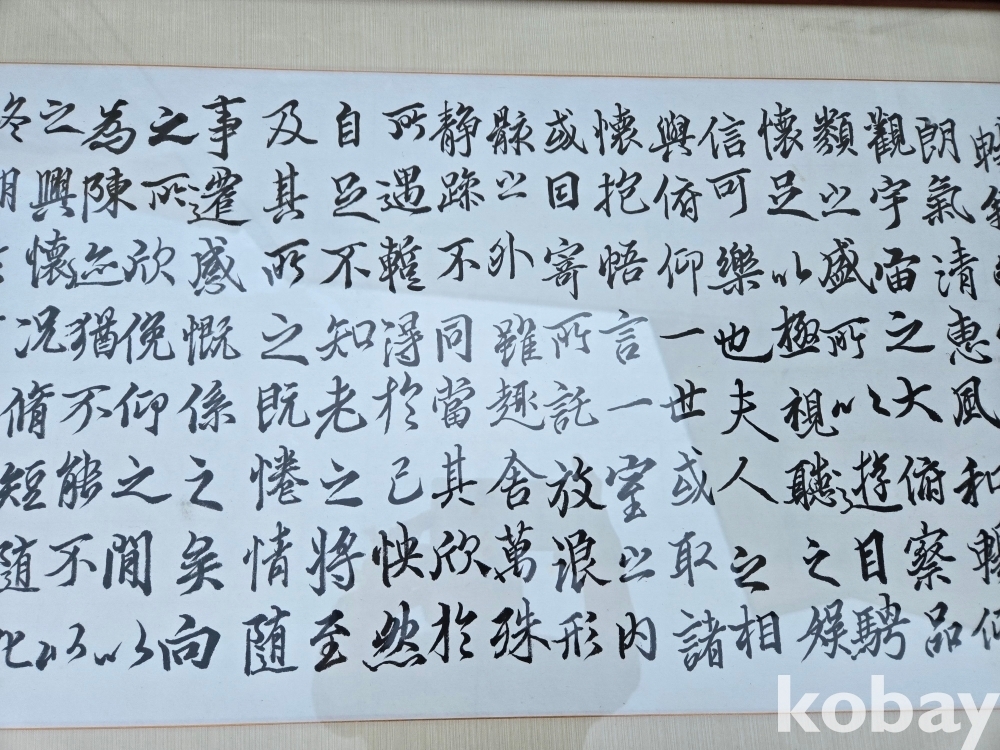 朗氣清惠風和暢仰
觀宇宙之大俯察品
類之盛所以遊目騁
懷足以極視聽之娛
信可樂也夫人之相
與俯仰一世或取諸
懷抱悟言一室之內
或因寄所託放浪形
骸之外雖趣舍萬殊
静躁不同當其欣於
所遇暫得於己怏然
自足不知老之將至
及其所之既惓情隨
事遷感慨係之矣向
之所欣俛仰之間以
為陳迹猶不能不以
之興懷況脩短隨化
終期
kobay